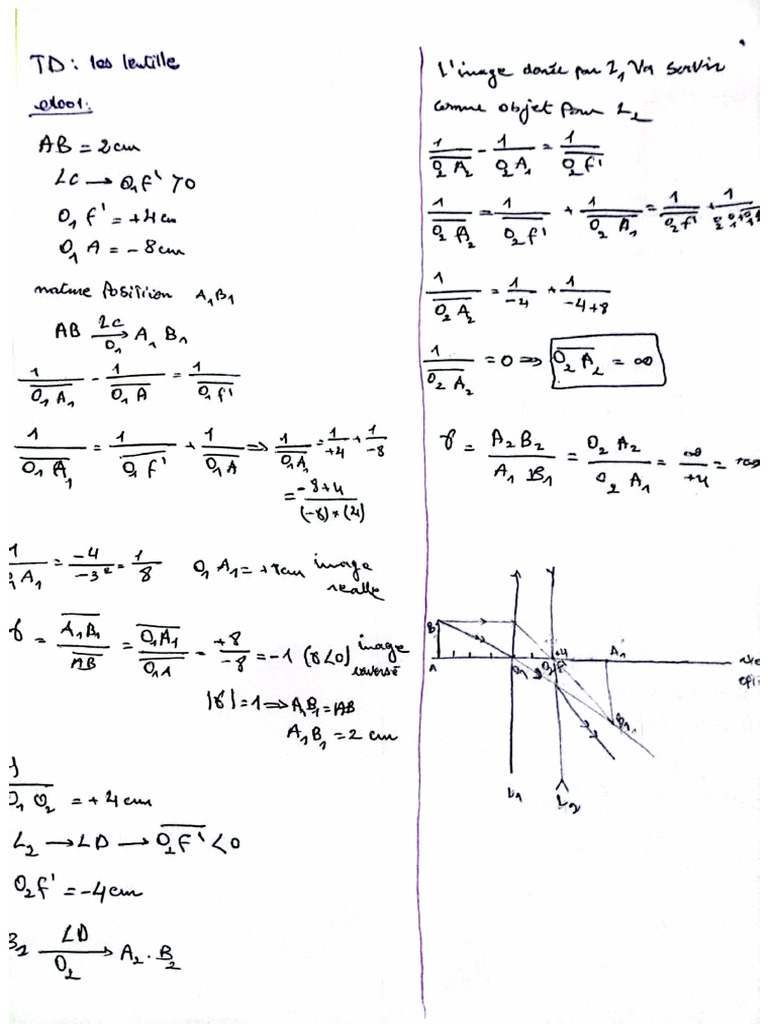 TD: les lentille
exo01:
AB = 2cm
LC → O₁F' > 0
O₁F' = +4 cm
O₁A = -8cm
nature Position A₁B₁
AB LC/O₁→ A₁B₁
1/O₁A₁ - 1/O₁A = 1/O₁F'
1/O₁A₁ = 1/O₁F' + 1/O₁A ⟹ 1/O₁A₁ = 1/+4 + 1/-8
= -8+4/(-8)×(4)
1/O₁A₁ = -4/-32 = 1/8 O₁A₁ = +8cm image
réelle
γ = A₁B₁/AB = O₁A₁/O₁A = +8/-8 = -1 (γ<0) image
|γ| = 1 ⟹ A₁B₁ = AB
A₁B₁ = 2 cm
O₁O₂ = +4cm
L₂ → LD → O₂F' < 0
O₂F' = -4cm
B₂ LD/O₂→ A₂.B₂
L'image donée par L₁ Va servir
comme objet pour L₂
1/O₂A₂ - 1/O₂A₁ = 1/O₂F'
1/O₂A₂ = 1/O₂F' + 1/O₂A₁ = 1/O₂F' + 1/O₂O₁+O₁A₁
1/O₂A₂ = 1/-4 + 1/-4+8
1/O₂A₂ = 0 ⟹ O₂A₂ = ∞
γ = A₂B₂/A₁B₁ = O₂A₂/O₂A₁ = ∞/+4 = +∞
B
A
O₁
O₂
A₁
B₁
L₁
L₂